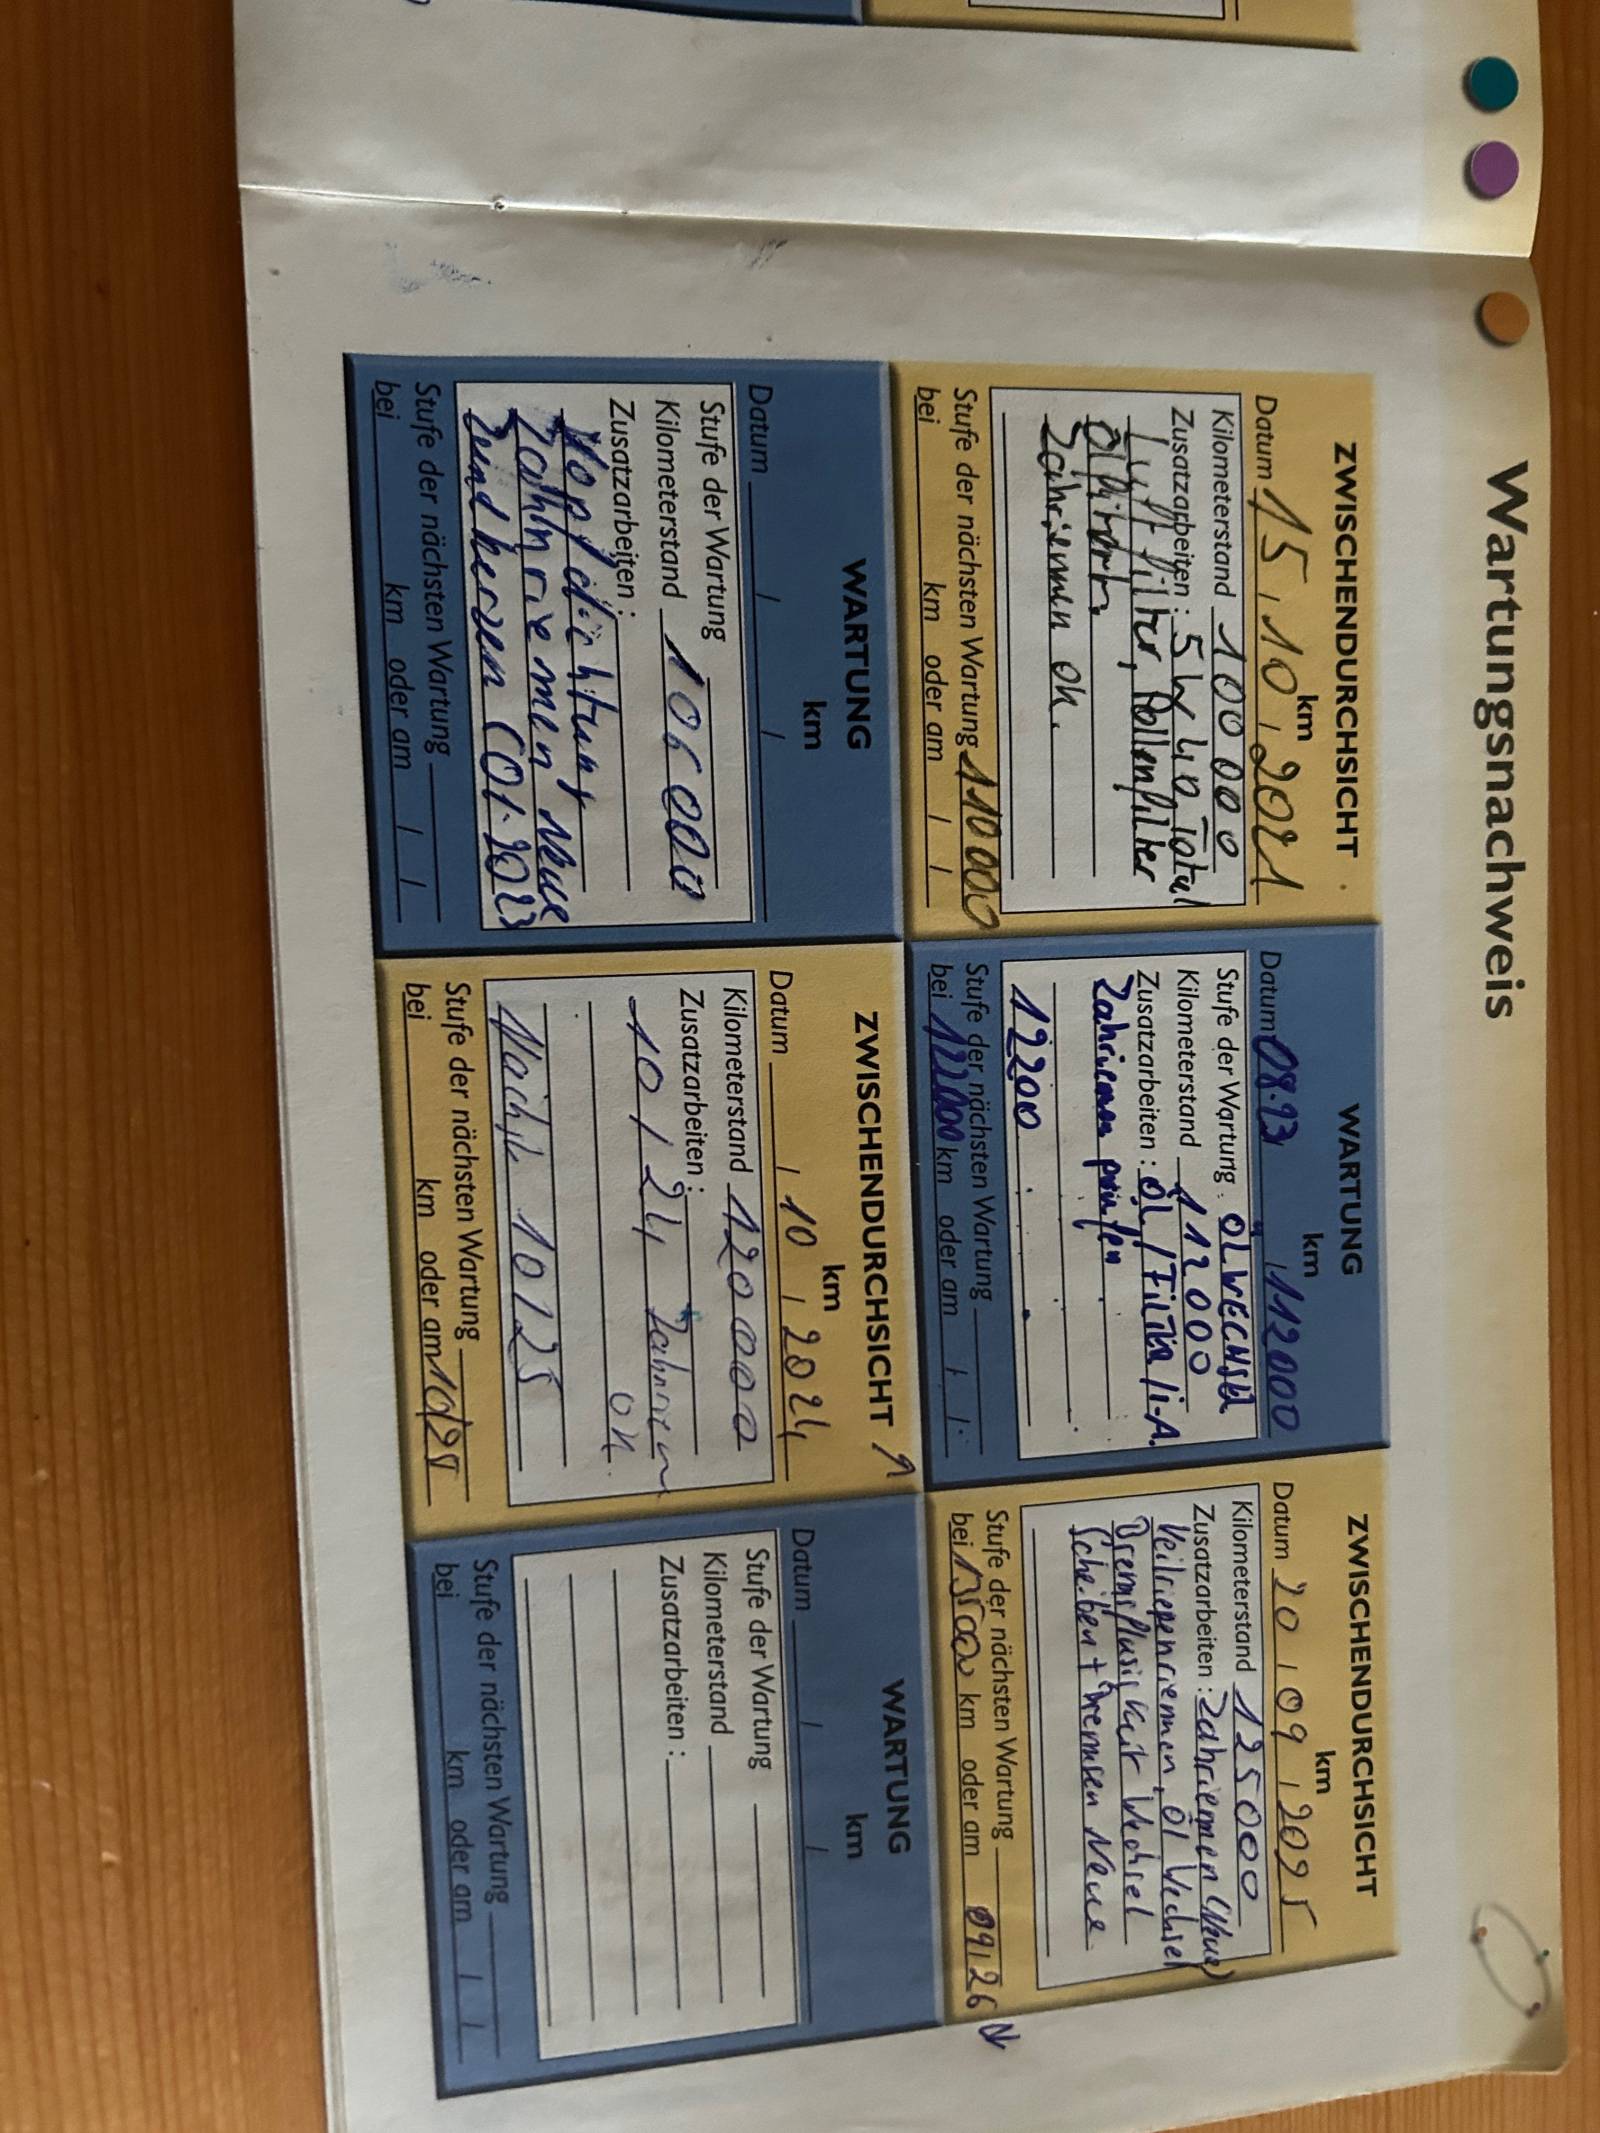 Wartungsnachweis
ZWISCHENDURCHSICHT
km
Datum 15.10.2021
Kilometerstand 100000
Zusatzarbeiten: 5W40 Total
Luftfilter, Pollenfilter
Ölfiltern.
Zahriemen ok.
Stufe der nächsten Wartung 110000
bei km oder am / /
WARTUNG
km
Datum / /
Stufe der Wartung
Kilometerstand 106000
Zusatzarbeiten:
Kopfdichtung
Zahnriemen Neue
Zündkerzen (01.2023
Stufe der nächsten Wartung
bei km oder am / /
WARTUNG
km
Datum 08.23 / 112000
Stufe der Wartung ÖLWECHSEL
Kilometerstand 112000
Zusatzarbeiten: ÖL/Filter/i.A.
Zahriemen prüfen
12200
Stufe der nächsten Wartung
bei 122000 km oder am / /
ZWISCHENDURCHSICHT 1
km
Datum / 10 / 2024
Kilometerstand 120000
Zusatzarbeiten:
10/24 Zahnriem
ok.
Nächt. 10/25
Stufe der nächsten Wartung
bei km oder am 10/25
ZWISCHENDURCHSICHT
km
Datum 20/09/2025
Kilometerstand 125000
Zusatzarbeiten: Zahriemen (Neue)
Keilriepenriemen, Öl Wechsel
Bremsflusigkeit Wechsel
Scheiben + Bremsen Neue
Stufe der nächsten Wartung
bei 135000 km oder am 09.26
WARTUNG
km
Datum / /
Stufe der Wartung
Kilometerstand
Zusatzarbeiten:
Stufe der nächsten Wartung
bei km oder am / /